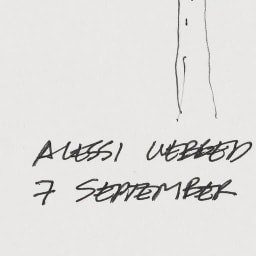 ALESSI WEBBED
7 SEPTEMBER